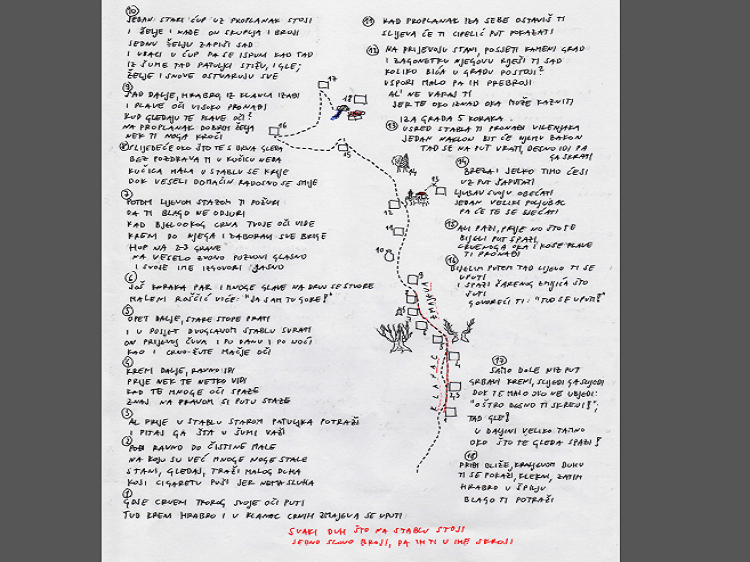 10
JEDAN STARI ĆUP UZ PROPLANAK STOJI
I ŽELJE I NADE ON SKUPLJA I BROJI
JEDNU ŽELJU ZAPIŠI SAD
I UBACI U ĆUP PA SE ISPUNI KAD TAD
IZ ŠUME TAD PATULJKI STIŽU, I GLE;
ŽELJE I SNOVE OSTVARUJU SVE
9
SAD DALJE, HRABRO, IZ KLANCA IZAĐI
I PLAVE OČI VISOKO PRONAĐI
KUD GLEDAJU TE PLAVE OČI?
NA PROPLANAK DOBRIH ŽELJA
NEK TI NOGA KROČI
8
SLIJEDEĆE OKO ŠTO TE S DRVA GLEDA
BEZ POZDRAVA TI U KUĆICU NEDA
KUĆICA MALA U STABLU SE KRIJE
DOK VESELI DOMAĆIN RADOSNO SE SMIJE
7
POTOM LIJEVOM STAZOM TI POŽURI
DA TI BLAGO NE ODJURI
KAD BJELOOKOG CRVA TVOJE OČI VIDE
KRENI DO NJEGA I ZABORAVI SVE BRIGE
HOP NA 2-3 GRANE
NA VESELO ZVONO POZVONI GLASNO
I SVOJE IME IZGOVORI JASNO
6
JOŠ KORAKA PAR I NOGE GLAVE NA DRVU SE STVORE
MALENI ROŠČIĆ VIČE: "JA SAM TU GORE!"
5
OPET DALJE, STARE STOPE PRATI
I U POSJET DVOGLAVOM STABLU SVRATI
ON PRIJEVOJ ČUVA I PO DANU I PO NOĆI
KAO I CRNO-ŽUTE MAČJE OČI
4
KRENI DALJE, RAVNO IDI
PRIJE NEK TE NETKO VIDI
KAD TE MNOGE OČI SPAZE
ZNAJ NA PRAVOM SI PUTU STAZE
3
AL PRIJE U STABLU STAROM PATULJKA POTRAŽI
I PITAJ GA ŠTA U ŠUMI VAŽI
2
POĐI RAVNO DO ČISTINE MALE
NA KOJU SU VEĆ MNOGE NOGE STALE
STANI, GLEDAJ, TRAŽI MALOG DUHA
KOJI CIGARETU PUŠI JER NEMA SLUHA
1
GDJE CRVENI TROROG SVOJE OČI PUTI
TUD KRENI HRABRO I U KLANAC CRNIH ZMAJEVA SE UPUTI
11 KAD PROPLANAK IZA SEBE OSTAVIŠ TI
SLIJEVA ĆE TI CIPELIĆ PUT POKAZATI
12 NA PRIJEVOJU STANI, POSJETI KAMENI GRAD
I ZAGONETKU NJEGOVU RIJEŠI TI SAD
KOLIKO BIĆA U GRADU POSTOJI?
USPORI MALO PA IH PREBROJI
AL' NE VARAJ TI
JER TE OKO IZNAD OKA MOŽE KAZNITI
IZA GRADA 5 KORAKA
13 USRED STABLA TI PRONAĐI VILENJAKA
JEDAN NAKLON BIT ĆE NJEMU
TAD SE NA PUT VRATI, DESNO IDI PA
GA SKRATI
14
BREZA I JELKO TIMO ĆESI
UZ PUT ŠAPUTATI
LJUBAV SVOJU OBEĆATI
JEDAN VELIKI POLJUBAC
PA ĆE TE SJEĆATI
15 ALI PAZI, PRIJE NO ŠTO SE
BIJELI PUT SPAZI
CRVENOGA OKA I KOSE PLAVE
TI PRONAĐI
16 BIJELIM PUTEM TAD LIJEVO TI SE
UPUTI
I SPAZI ŠARENOG ZMIJIĆA ŠTO
ŠUTI
GOVOREĆI TI: "TUD SE UPUTI"
17
SAMO DOLE NIZ PUT
GRBAVI KRENI, SLIJEDI GA SLIJEDI
DOK TE MALO OKO NE UBIJEDI:
"OŠTRO DESNO TI SKRENI!",
TAD GLE!
U DALJINI VELIKO TAMNO
OKO ŠTO TE GLEDA SPAZI!
18
PRIĐI BLIŽE, KRALJEVOM DUHU
TI SE POKAŽI, KLEKNI, ZATIM
HRABRO U ŠPILJU
BLAGO TI POTRAŽI
17
18
16
15
14
13
12
11
10
9
8
7
6
5
4
2,3
1
ZMAJEVA
KLANAC
SVAKI DUH ŠTO NA STABLU STOJI
JEDNO SLOVO BROJI, PA IH TI U IME SKROJI